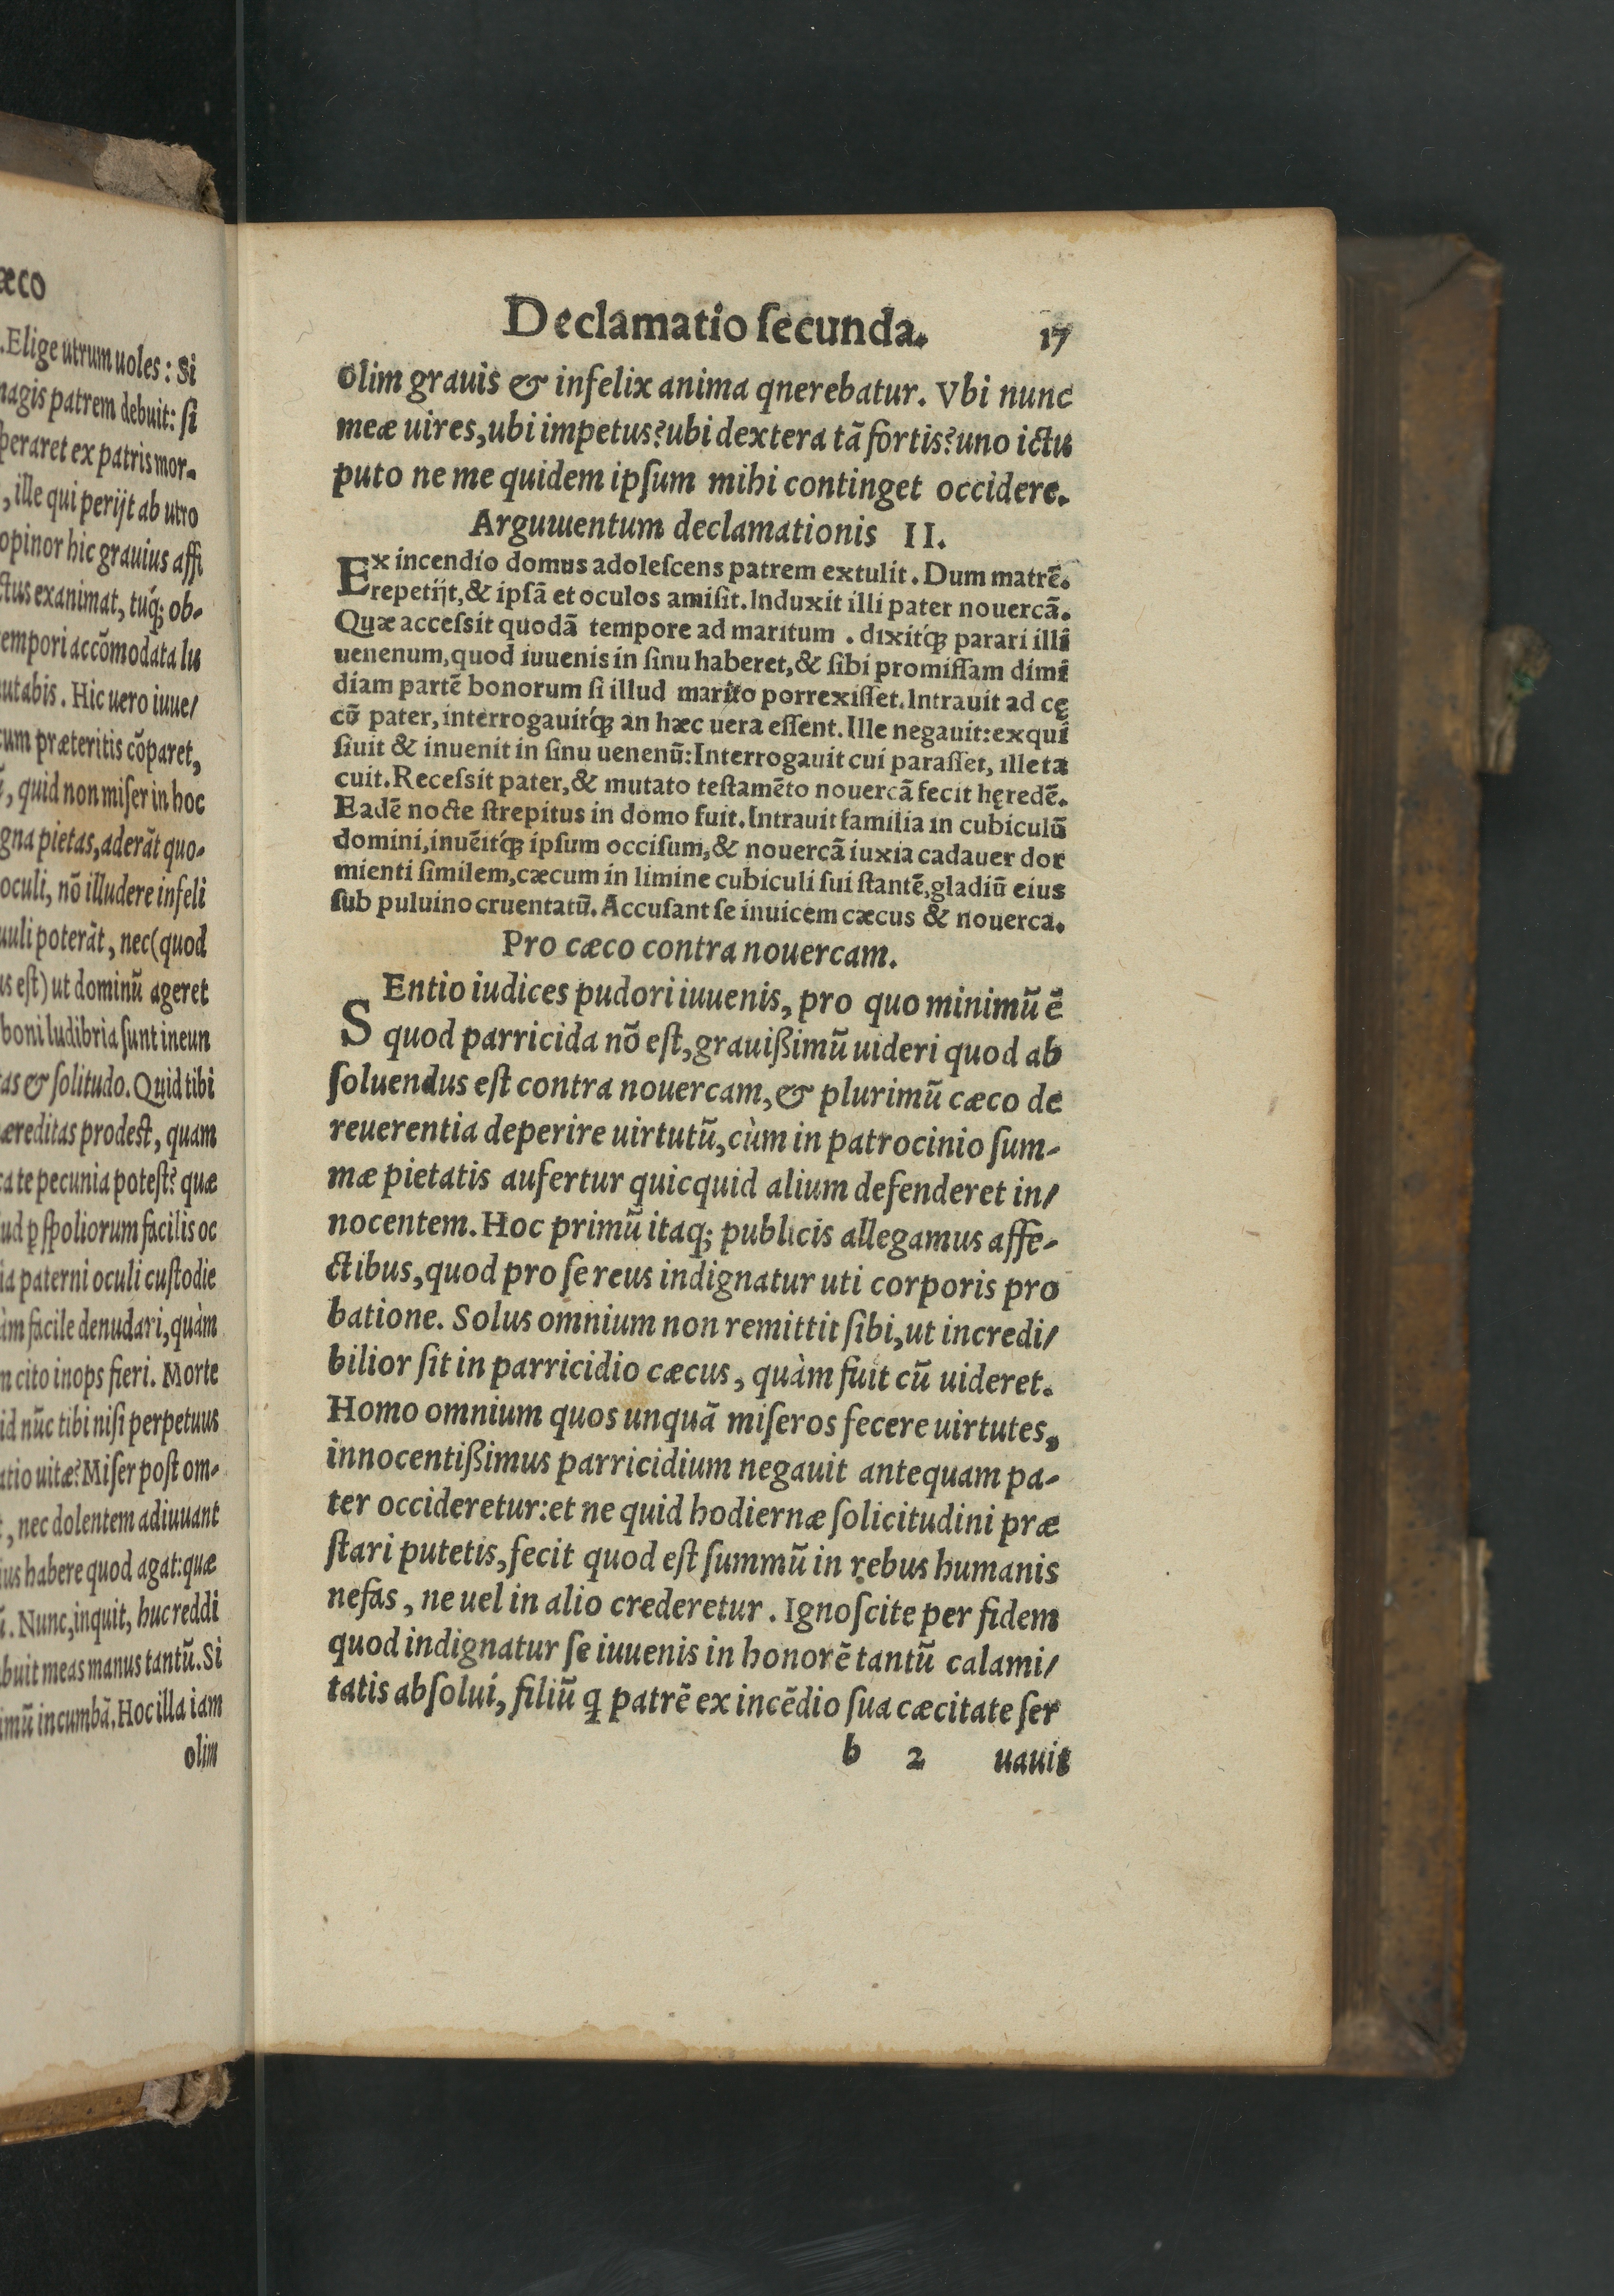 æco
.Elige utrum uoles: Si
magis patrem debuit: ſi
ſperaret ex patris mor-
, ille qui perijt ab utro
opinor hic grauius affi
ctus exanimat, tuq́; ob-
tempori accõmodata lu
utabis. Hic uero iuue/
cum præteritis cõparet,
, quid non miſer in hoc
gna pietas, aderãt quo-
oculi, nõ illudere infeli
poterãt, nec (quod
us eſt) ut dominũ ageret
boni ludibria ſunt ineun
tas & ſolitudo. Quid tibi
æreditas prodeſt, quam
te pecunia poteſt? quæ
ꝑ ſpoliorum facilis oc
ia paterni oculi cuſtodie
àm facile denudari, quàm
cito inops fieri. Morte
id nũc tibi niſi perpetuus
atio uitæ? Miſer poſt om-
, nec dolentem adiuuant
ius habere quod agat: quæ
. Nunc, inquit, huc reddi
buit meas manus tantũ. Si
imũ incumbã. Hoc illa iam
olim
Declamatio ſecunda. 17
olim grauis & infelix anima qnerebatur. Vbi nunc
meæ uires, ubi impetus? ubi dextera tã fortis? uno ictu
puto ne me quidem ipſum mihi continget occidere.
Arguuentum declamationis II.
Ex incendio domus adoleſcens patrem extulit. Dum matrẽ.
repetijt, & ipſã et oculos amiſit. Induxit illi pater nouercã.
Quæ acceſsit quodã tempore ad maritum . dixitq́ꝫ parari illi
uenenum, quod iuuenis in ſinu haberet, & ſibi promiſſam dimi
diam partẽ bonorum ſi illud marito porrexiſſet. Intrauit ad cę
cũ pater, interrogauitq́ꝫ an hæc uera eſſent. Ille negauit: exqui
ſiuit & inuenit in ſinu uenenũ: Interrogauit cui paraſſet, ille ta
cuit. Receſsit pater, & mutato teſtamẽto nouercã fecit hęredẽ.
Eadẽ nocte ſtrepitus in domo fuit. Intrauit familia in cubiculũ
domini, inuẽitq́ꝫ ipſum occiſum, & nouercã iuxia cadauer dor
mienti ſimilem, cæcum in limine cubiculi ſui ſtantẽ, gladiũ eius
ſub puluino cruentatũ. Accuſant ſe inuicem cæcus & nouerca.
Pro cæco contra nouercam.
SEntio iudices pudori iuuenis, pro quo minimũ ẽ
quod parricida nõ eſt, grauißimũ uideri quod ab
ſoluendus eſt contra nouercam, & plurimũ cæco de
reuerentia deperire uirtutũ, cùm in patrocinio ſum-
mæ pietatis aufertur quicquid alium defenderet in/
nocentem. Hoc primũ itaq; publicis allegamus affe-
ctibus, quod pro ſe reus indignatur uti corporis pro
batione. Solus omnium non remittit ſibi, ut incredi/
bilior ſit in parricidio cæcus, quàm fuit cũ uideret.
Homo omnium quos unquã miſeros fecere uirtutes,
innocentißimus parricidium negauit antequam pa-
ter occideretur: et ne quid hodiernæ ſolicitudini præ
ſtari putetis, fecit quod eſt ſummũ in rebus humanis
nefas, ne uel in alio crederetur. Ignoſcite per fidem
quod indignatur ſe iuuenis in honorẽ tantũ calami/
tatis abſolui, filiũ q̃ patrẽ ex incẽdio ſua cæcitate ſer
b 2 uauit